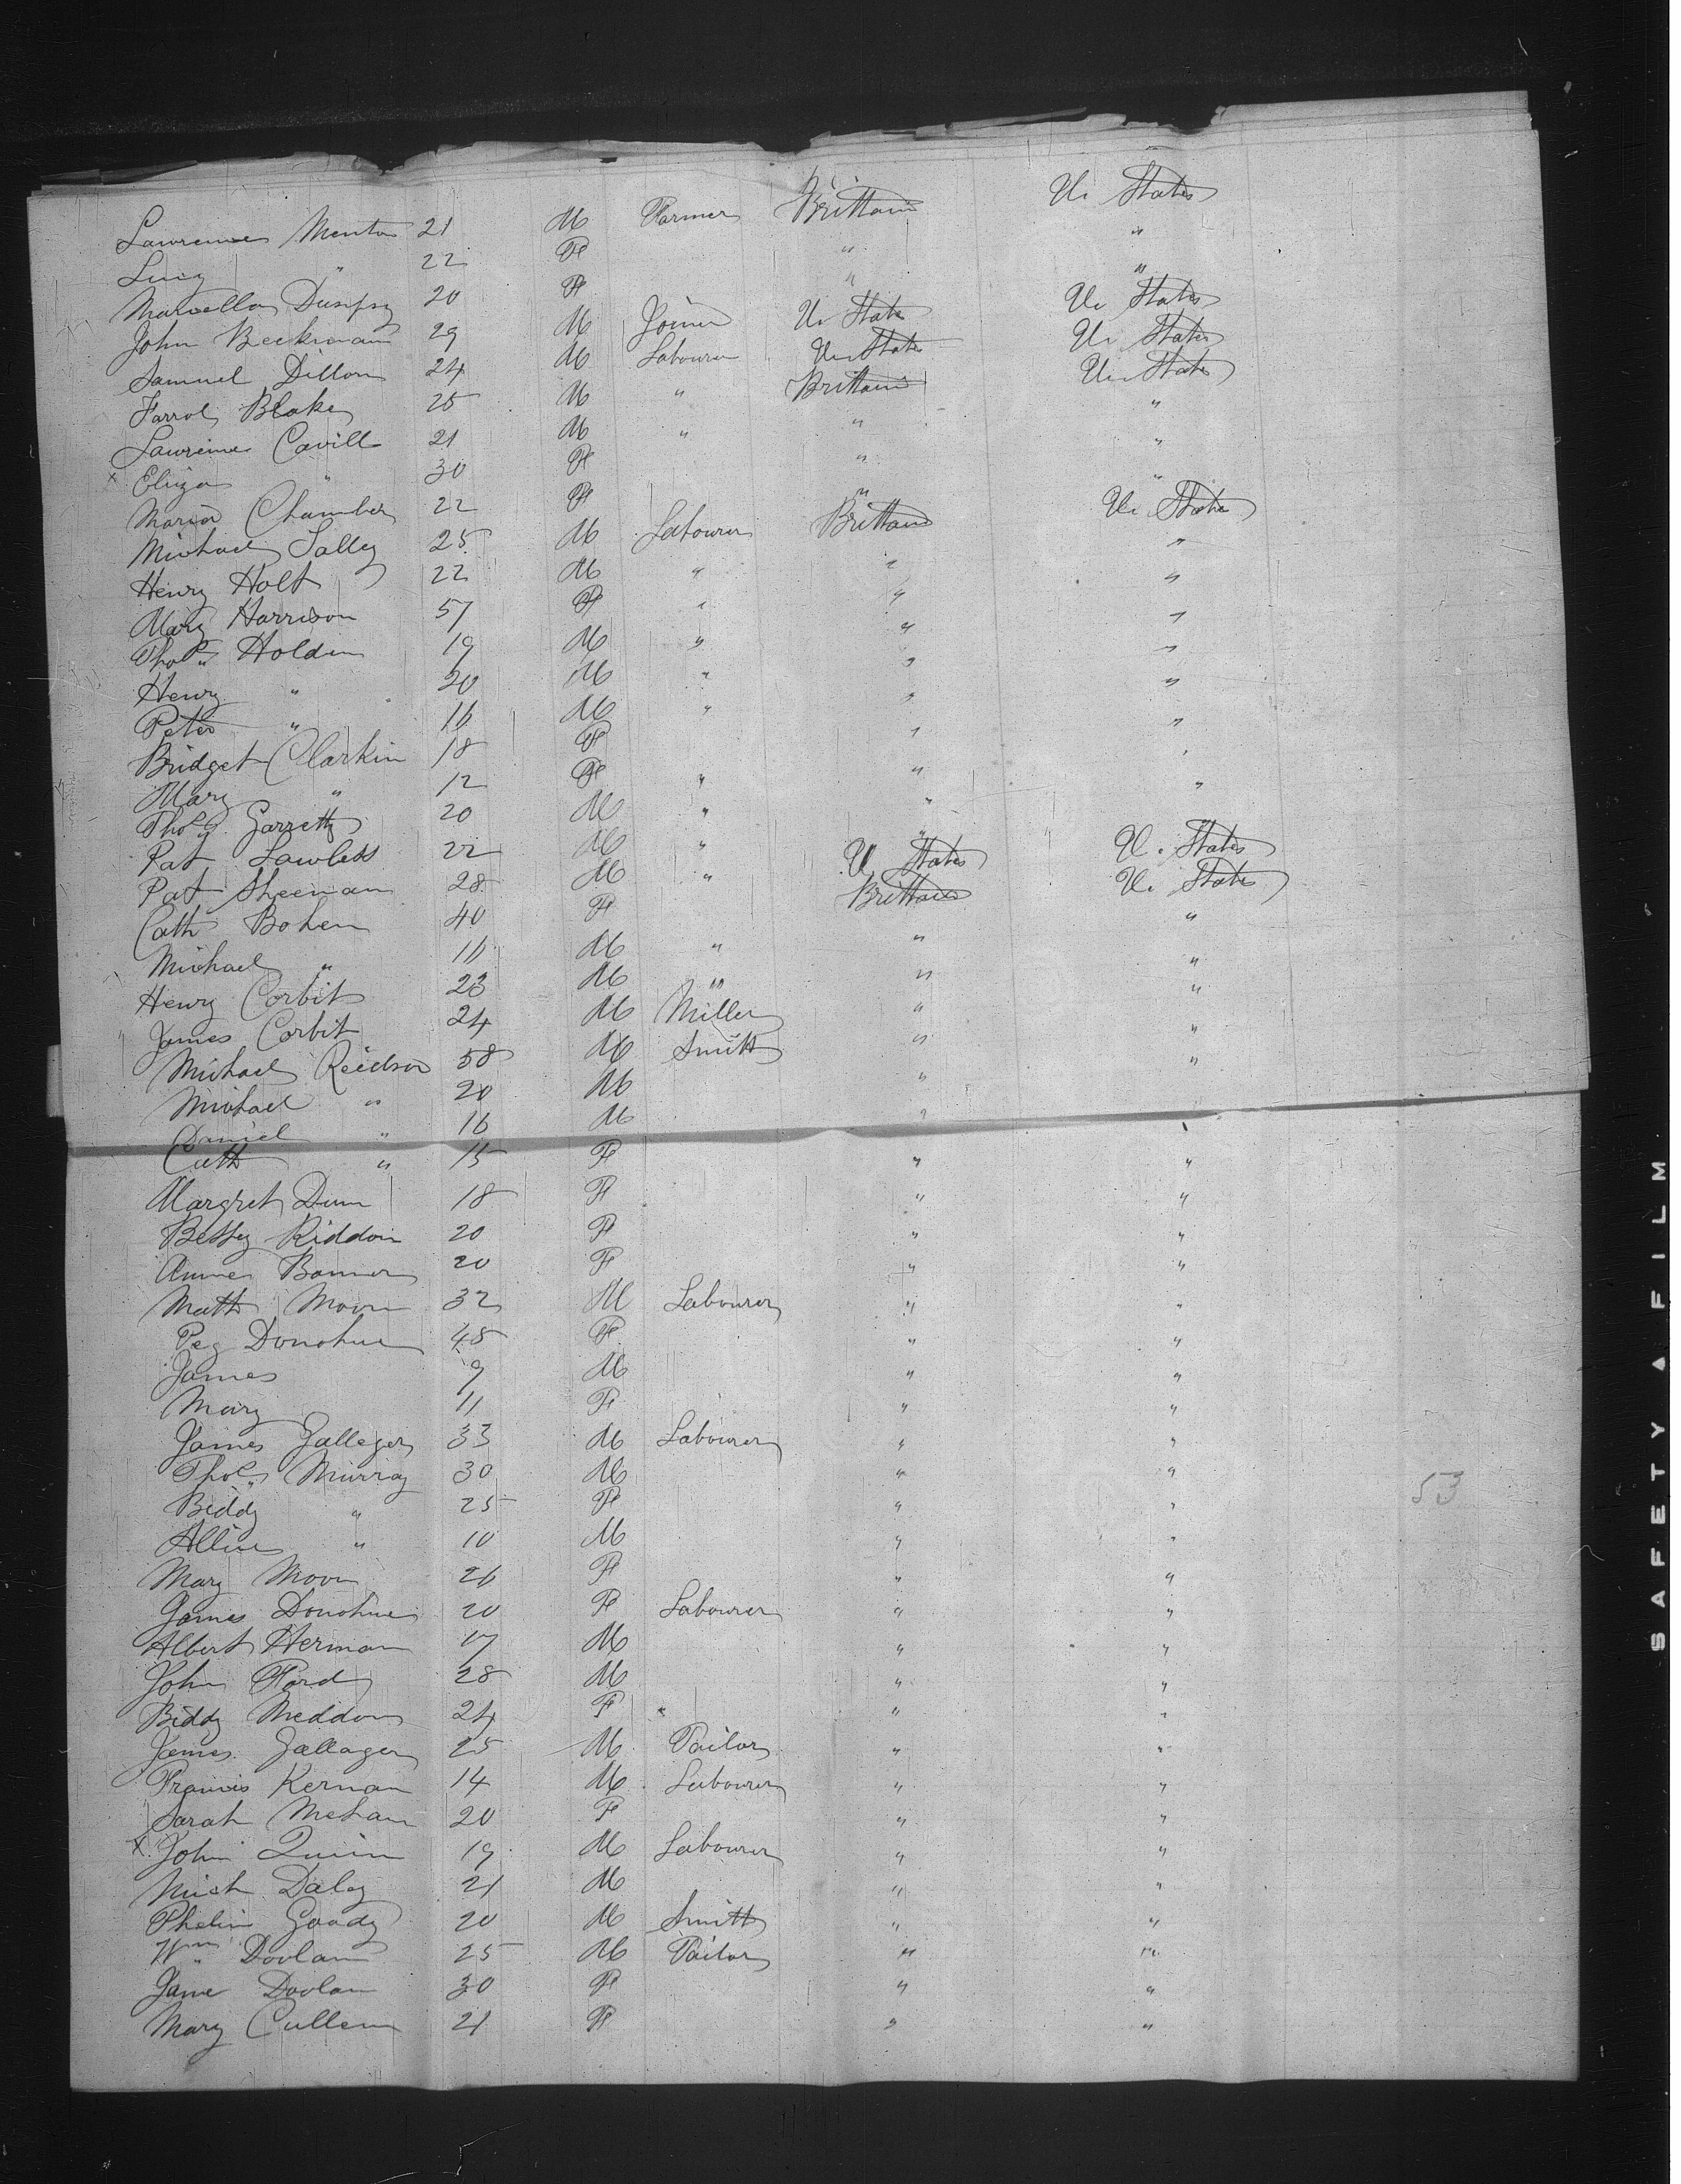 Lawrence Menton 21 M Farmer Brittain U. States
Lucy " 22 F " "
Marcella Dempsy 20 F " "
John Beckman 29 M Joiner U. States U. States
Samuel Dillon 24 M Labourer U. States U. States
Farrol Blake 25 M " Brittain U. States
Lawrence Cavill 21 M " " "
x Eliza " 30 F " "
Maria Chamber 22 F " "
Michael Lalley 25 M Labourer Brittain U. States
Henry Holt 22 M " " "
Mary Harrison 57 F " " "
Thos Holden 19 M " " "
Henry " 20 M " " "
Peter " 16 M " " "
Bridget Clarkin 18 F " "
Mary " 12 F " "
Thos Garretty 20 M " " "
Pat Lawless 22 M " "
Pat Sheenan 28 M " U. States U. States
Cath Bohen 40 F Brittain U. States
Michael " 16 M " " "
Henry Corbit 23 M " " "
James Corbit 24 M Miller " "
Michael Reidson 58 M Smith " "
Michael " 20 M " "
Daniel " 16 M "
Cath " 15 F " "
Margret Dunn 18 F " "
Bessy Riddon 20 F " "
Annes Bonner 20 F " "
Math Moon 32 M Labourer " "
Peg Donohue 45 F " "
James 9 M " "
Mary 11 F " "
James Galleger 33 M Labourer " "
Thos Murray 30 M " " 53
Biddy " 25 F " "
Allice " 10 M " "
Mary Moon 26 F " "
James Donohue 20 F Labourer " "
Albert Herman 17 M " "
John Ford 28 M " "
Biddy Meddon 24 F " " "
James Gallager 25 M Tailor " "
Francis Kernan 14 M Labourer " "
Sarah Mehan 20 F " "
x John Quinn 19 M Labourer " "
Mich Daley 21 M " "
Phelin Goady 20 M Smith " "
Wm Doolan 25 M Tailor " "
Jane Doolan 30 F " "
Mary Cullen 21 F " "
SAFETY FILM